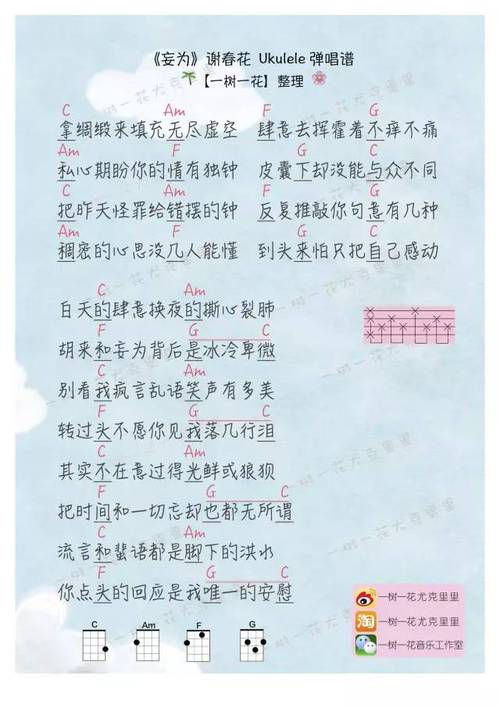 《妄为》谢春花 Ukulele 弹唱谱
【一树一花】整理
C Am F G
拿绸缎来填充无尽虚空 肆意去挥霍着不痒不痛
Am F G C
私心期盼你的情有独钟 皮囊下却没能与众不同
C Am F G
把昨天怪罪给错摆的钟 反复推敲你句意有几种
Am F G C
稠密的心思没几人能懂 到头来怕只把自己感动
C Am
白天的肆意换夜的撕心裂肺
F G C
胡来和妄为背后是冰冷卑微
C Am
别看我疯言乱语笑声有多美
F G C
转过头不愿你见我落几行泪
C Am
其实不在意过得光鲜或狼狈
F G C
把时间和一切忘却也都无所谓
C Am
流言和蜚语都是脚下的洪水
F G C
你点头的回应是我唯一的安慰
C Am F G
一树一花尤克里里
一树一花尤克里里
一树一花音乐工作室